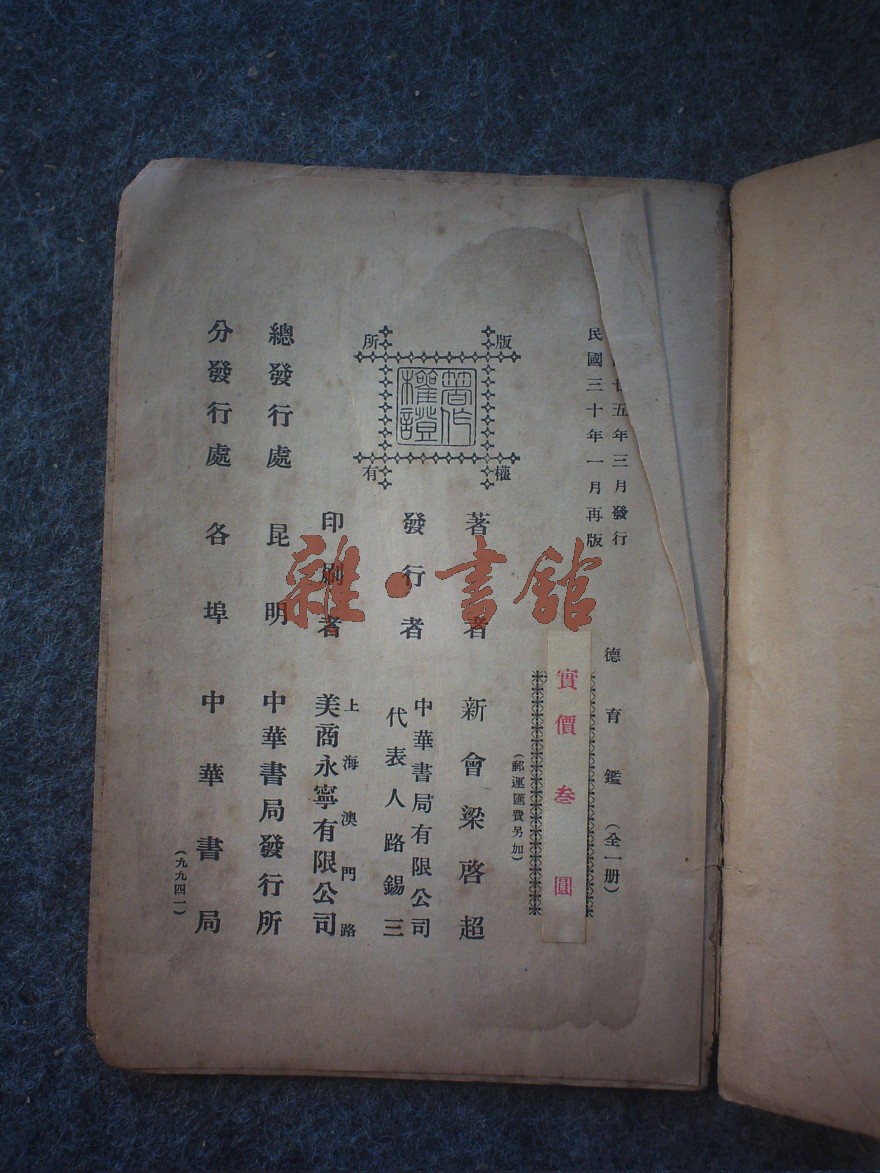 廿五年三月發行
民國三十年一月再版
德育鑑（全一册）
實價叁圓
（郵運匯費另加）
版權所有
著作權證
著者 新會梁啓超
發行者 中華書局有限公司
代表人路錫三
印刷者 上海澳門路
美商永寧有限公司
總發行處 昆明 中華書局發行所
分發行處 各埠 中華書局
（九九四一）
雜·書館